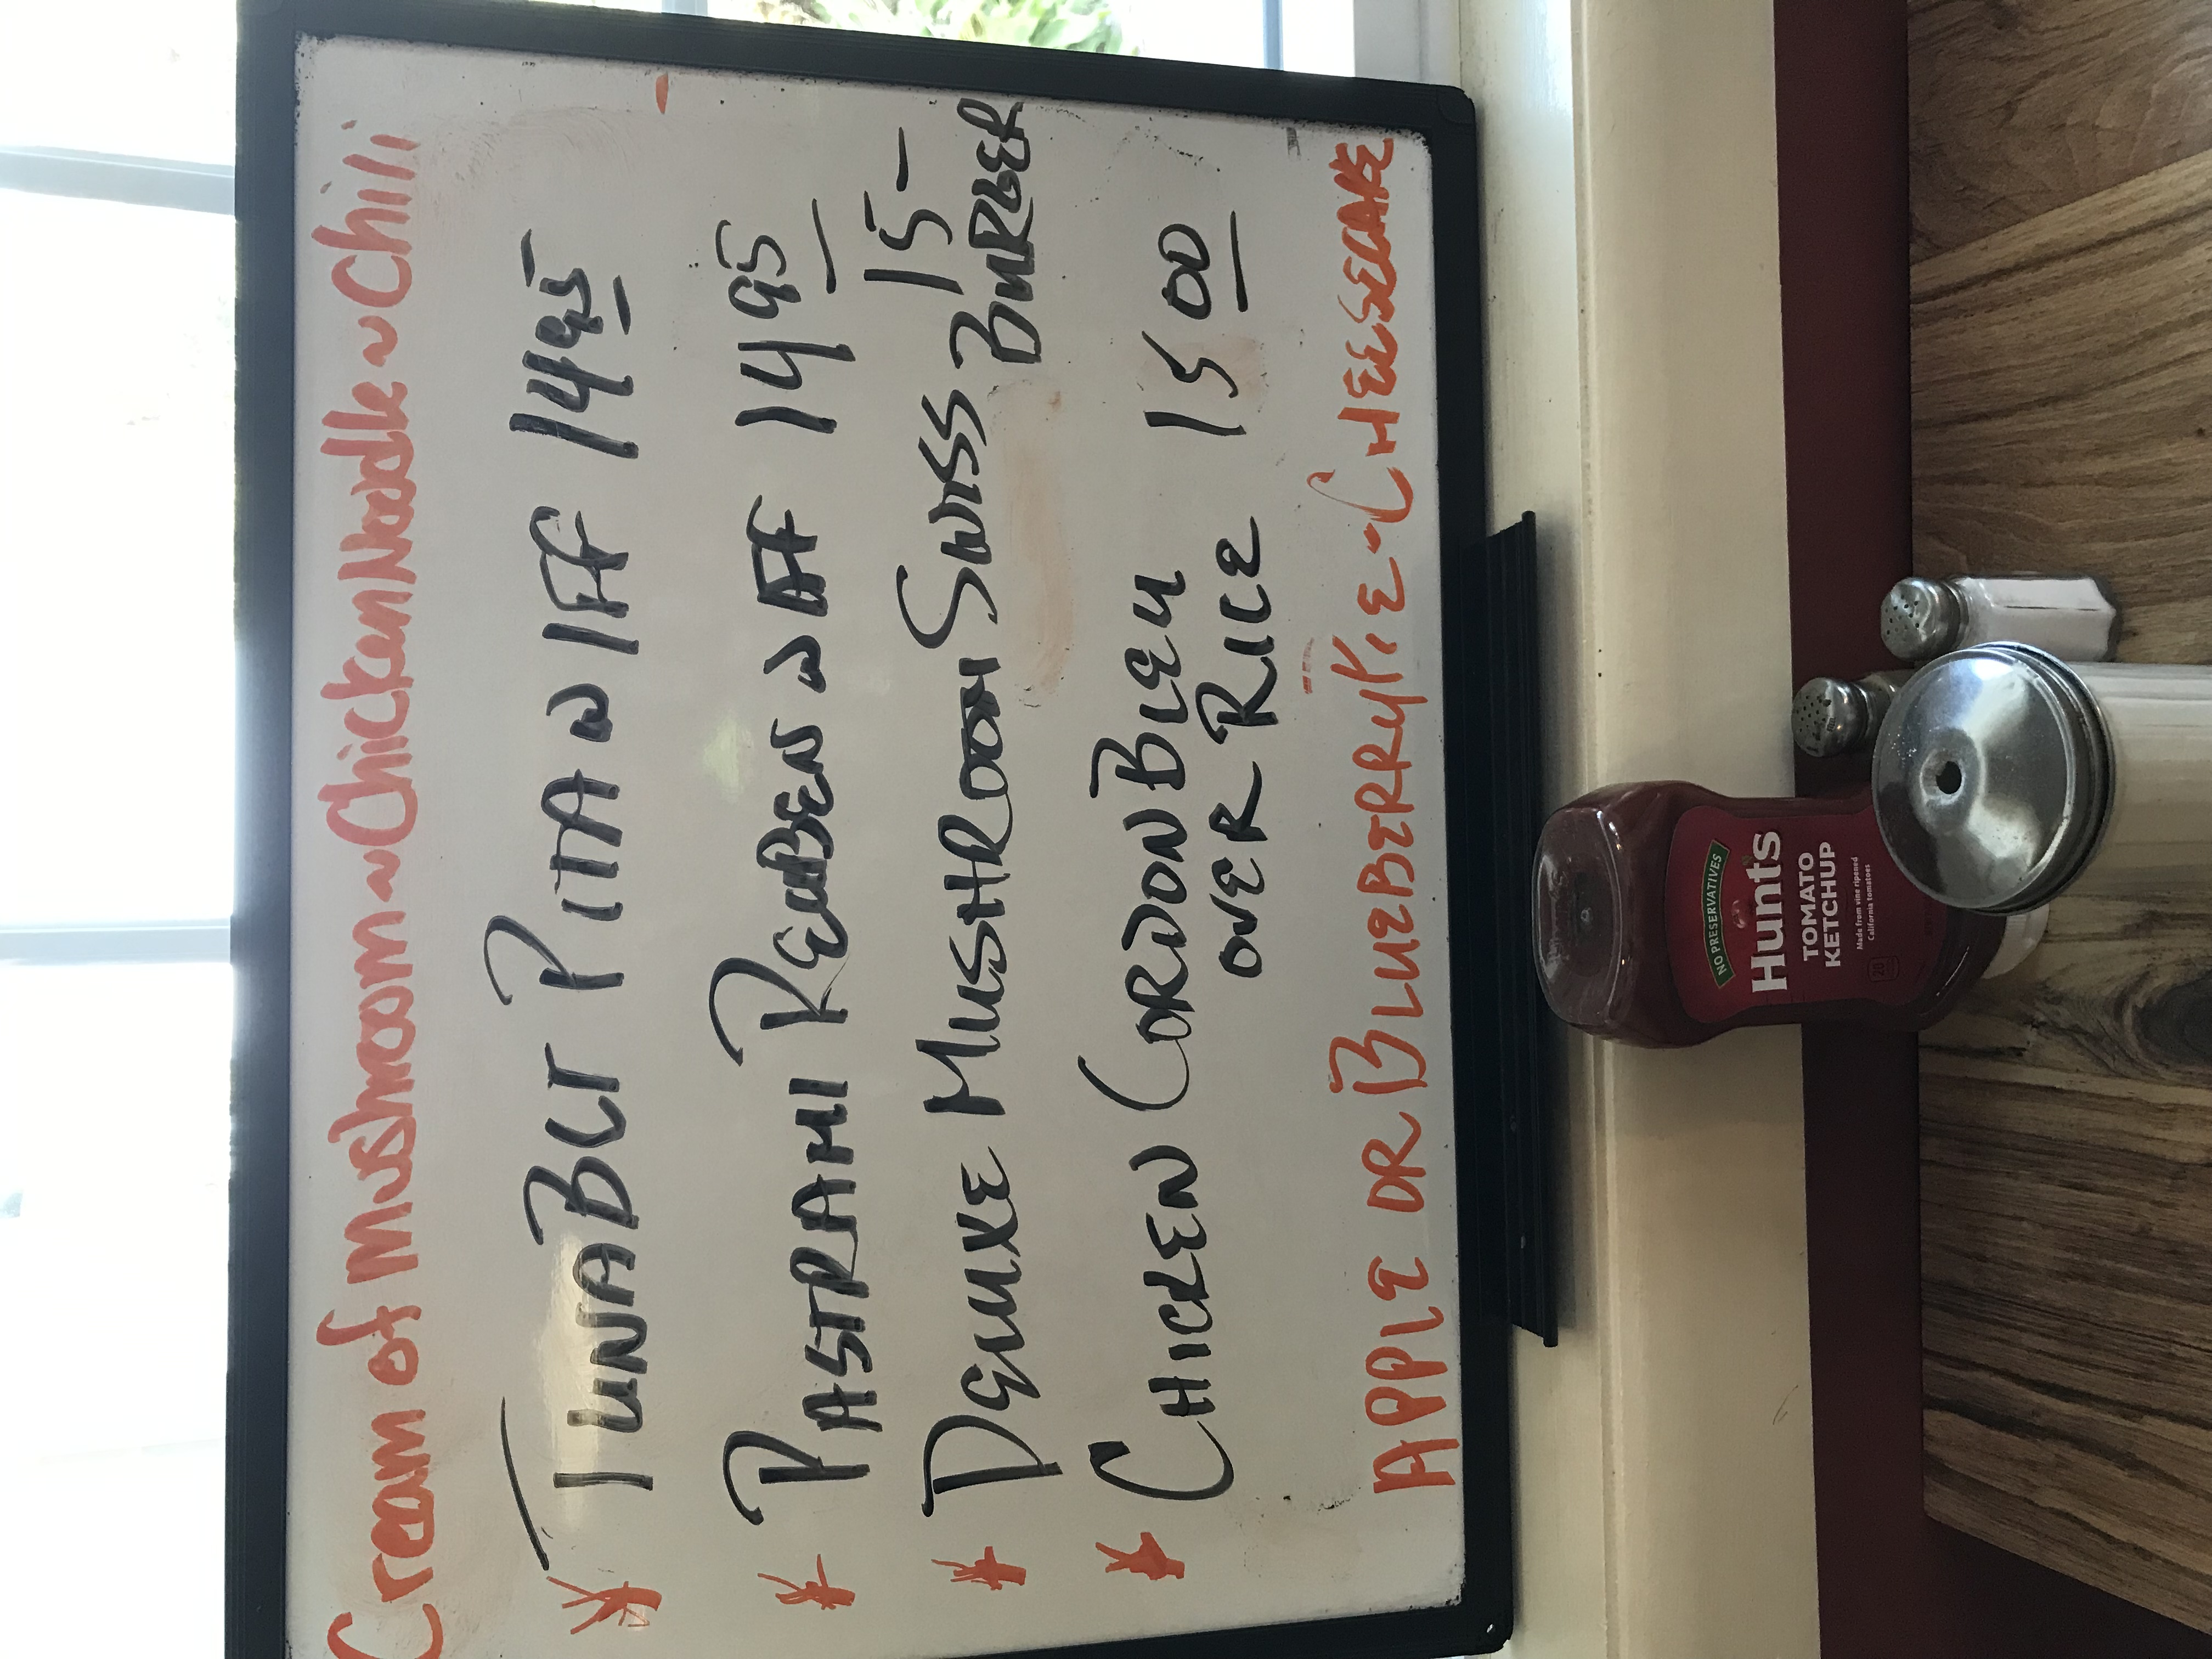 Cream of Mushroom ~ Chicken Noodle ~ Chili
* TUNA BLT PITA W FF 14 95
* PASTRAMI REUBEN W FF 14 95
* DELUXE MUSHROOM SWISS BURGER 15-
* CHICKEN CORDON BLEU 15 00
OVER RICE
APPLE OR BLUEBERRY PIE - CHEESECAKE
NO PRESERVATIVES
Hunt's
TOMATO
KETCHUP
Made from vine ripened
California tomatoes